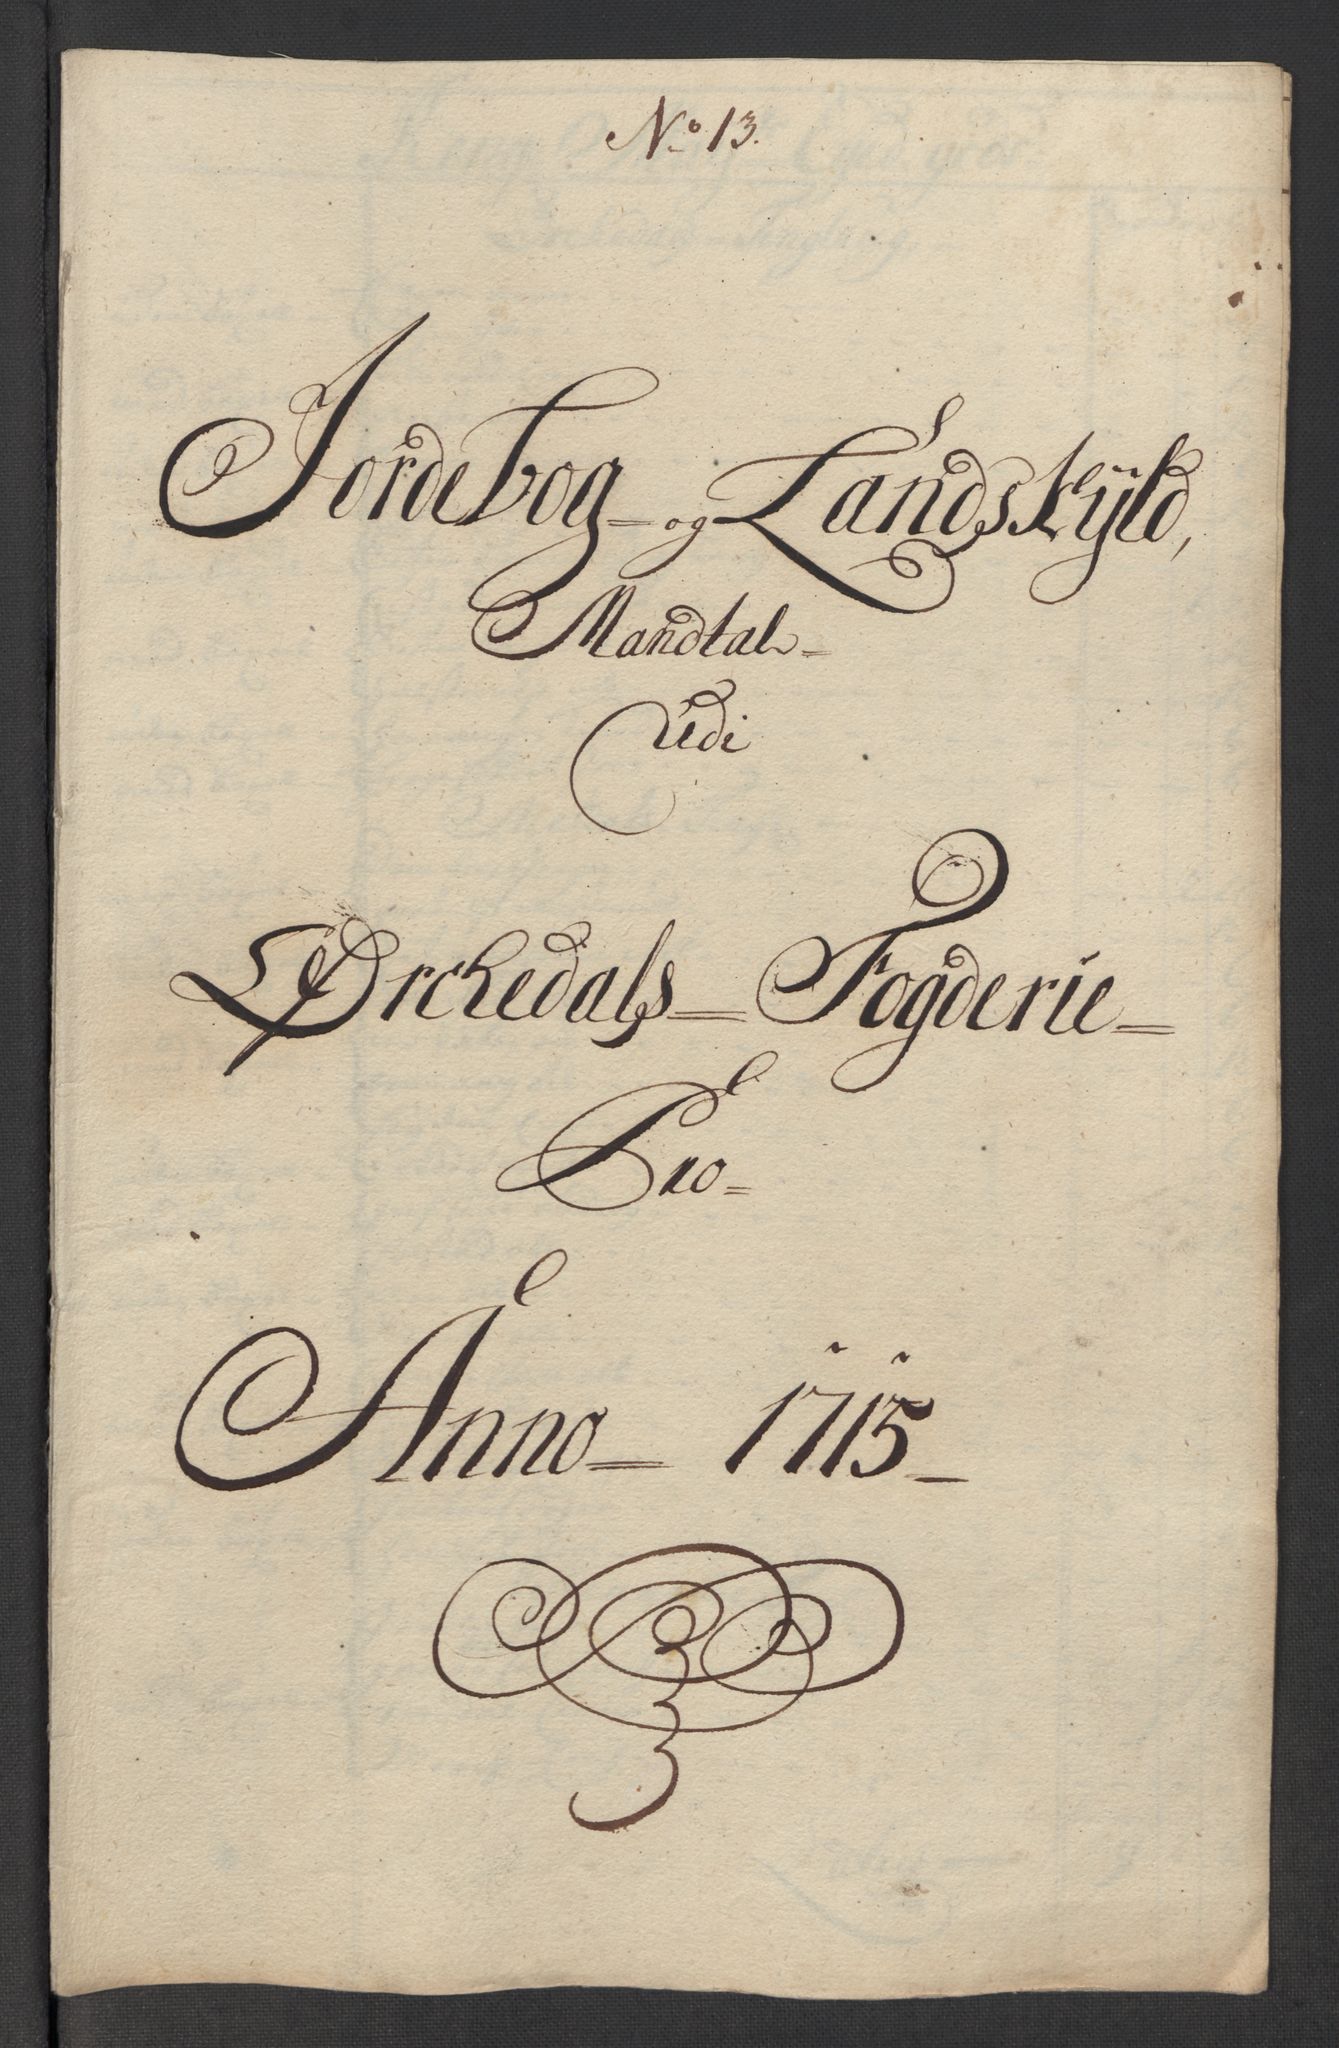 No 13.
Jordebog og Landskÿld,
Mandtal
Udi
Ørckedals Fogderie
Pro
Anno 1715